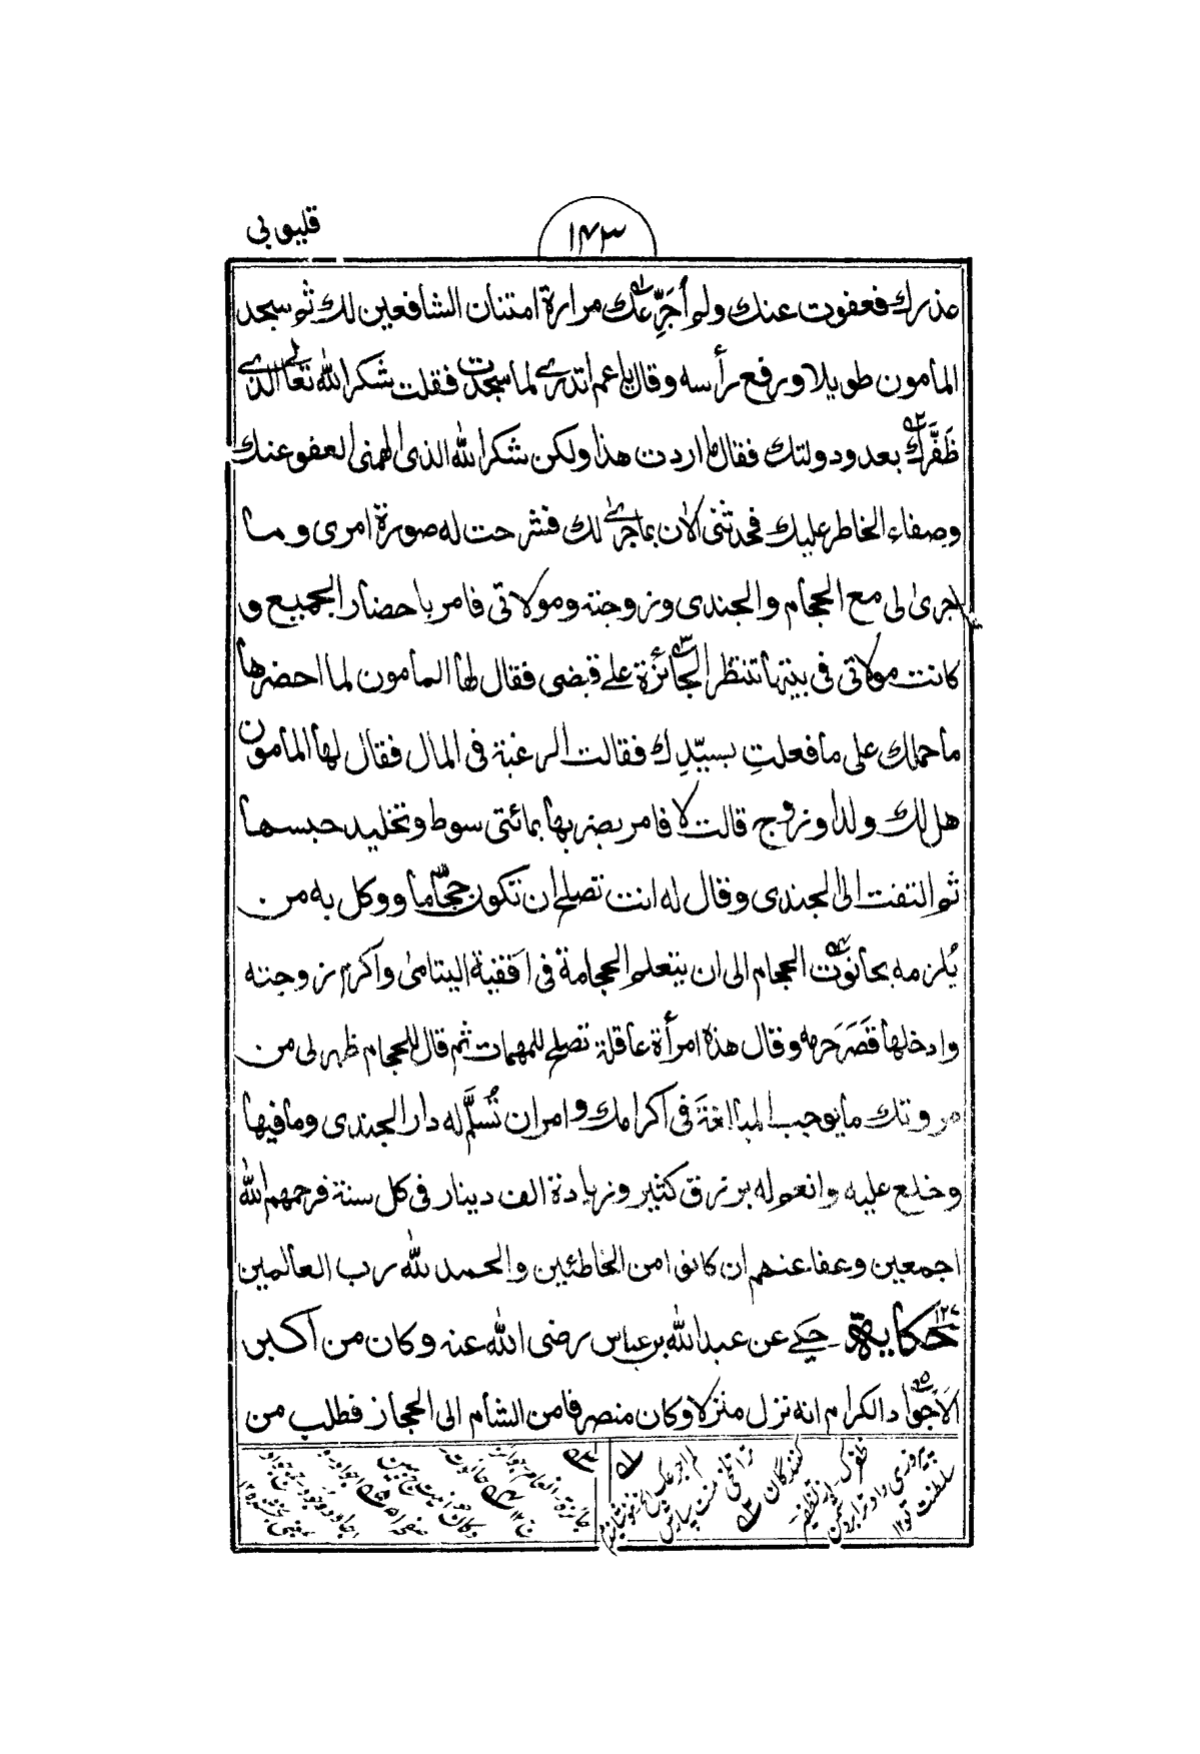 قليوبي
١٤٣
عذرك فعفوت عنك ولم أجرّعك مرارة امتنان الشافعين لك ثم سجد
المامون طويلا ورفع رأسه وقال يا عم اتدرى لما سجدت فقلت شكرا لله تعالى الذى
ظَفَّرك بعدو دولتك فقال ما اردت هذا ولكن شكرا لله الذى الهمنى العفو عنك
وصفاء الخاطر عليك فحدثنى الان بما جرى لك فشرحت له صورة امرى وما
جرى لى مع الحجام والجندى وزوجته ومولاتى فامر باحضار الجميع و
كانت مولاتى فى بيتها تنتظر الجائزة على قبضى فقال لها المامون لما احضرها
ما حملك على ما فعلتِ بسيّدِك فقالت الرغبة فى المال فقال لها المامون
هل لك ولد او زوج قالت لا فامر بضربها بمائتى سوط وتخليد حبسها
ثم التفت الى الجندى وقال له انت تصلح ان تكون حجّاما ووكل به من
يُلزمه بحانوت الحجام الى ان يتعلم الحجامة فى اقفية اليتامى واكرم زوجته
وادخلها قَصَرَ حَرمه وقال هذه امرأة عاقلة تصلح للمهمات ثم قال للحجام ظهر لى من
مروتك ما يوجب المبالغةَ فى اكرامك وامر ان تُسلَّم له دار الجندى وما فيها
وخلع عليه وانعم له برزق كثير وزيادة الف دينار فى كل سنة فرحمهم الله
اجمعين وعفا عنهم ان كانوا من الخاطئين والحمد لله رب العالمين
حكاية ١٢٧ حكى عن عبد الله بن عباس رضى الله عنه وكان من اكبر
الاَجواد الكرام انه نزل منزلا وكان منصرفا من الشأم الى الحجاز فطلب من